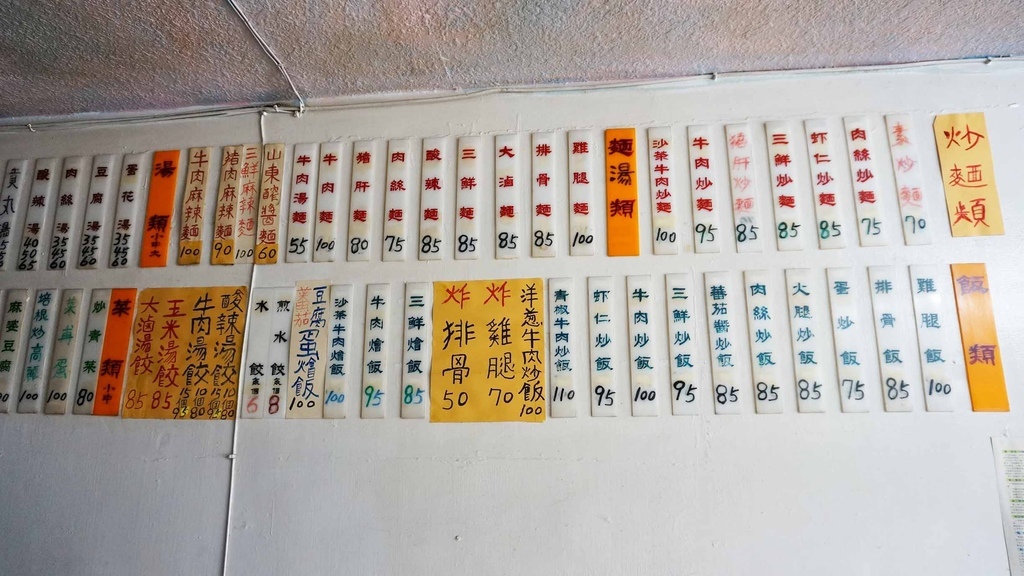 炒麵類
素炒麵 70
肉絲炒麵 75
蝦仁炒麵 85
三鮮炒麵 85
豬肝炒麵 85
牛肉炒麵 95
沙茶牛肉炒麵 100
麵湯類
雞腿麵 100
排骨麵 85
大滷麵 85
三鮮麵 85
酸辣麵 85
肉絲麵 75
豬肝麵 80
牛肉麵 100
牛肉湯麵 55
山東酢醬麵 60
三鮮麻辣麵 100
豬肉麻辣麵 90
牛肉麻辣麵 100
湯類 小中大
蛋花湯 35 45 60
豆腐湯 35 45 60
肉絲湯 35 45 60
酸辣湯 40 50 65
丸湯
飯類
雞腿飯 100
排骨飯 85
蛋炒飯 75
火腿炒飯 85
肉絲炒飯 85
蕃茄醬炒飯 85
三鮮炒飯 95
牛肉炒飯 100
虾仁炒飯 95
青椒牛肉炒飯 110
洋蔥牛肉炒飯 100
炸雞腿 70
炸排骨 50
三鮮燴飯 85
牛肉燴飯 95
沙茶牛肉燴飯 100
豆腐蛋燴飯 100
煎水餃 8
水餃 6
酸辣湯餃
牛肉湯餃
玉米湯餃 85
大滷湯餃 85
菜類 小中
炒青菜 80
100
培根炒高麗 100
麻婆豆腐